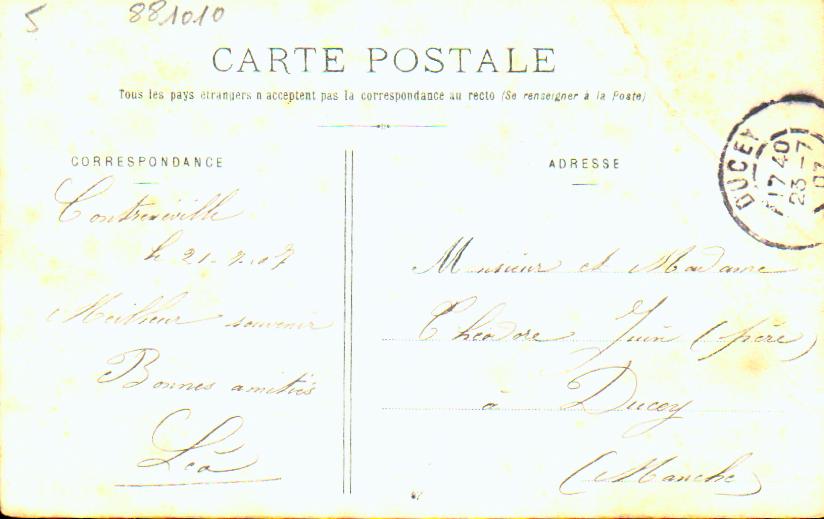 5
881010
CARTE POSTALE
Tous les pays étrangers n'acceptent pas la correspondance au recto (Se renseigner à la Poste)
CORRESPONDANCE
Contrexéville
le 21-7-07
Meilleur souvenir
Bonnes amitiés
Léa
ADRESSE
Monsieur et Madame
Théodore Juin (père)
à Ducey
(Manche)
DUCEY
17 40
23 -7
07